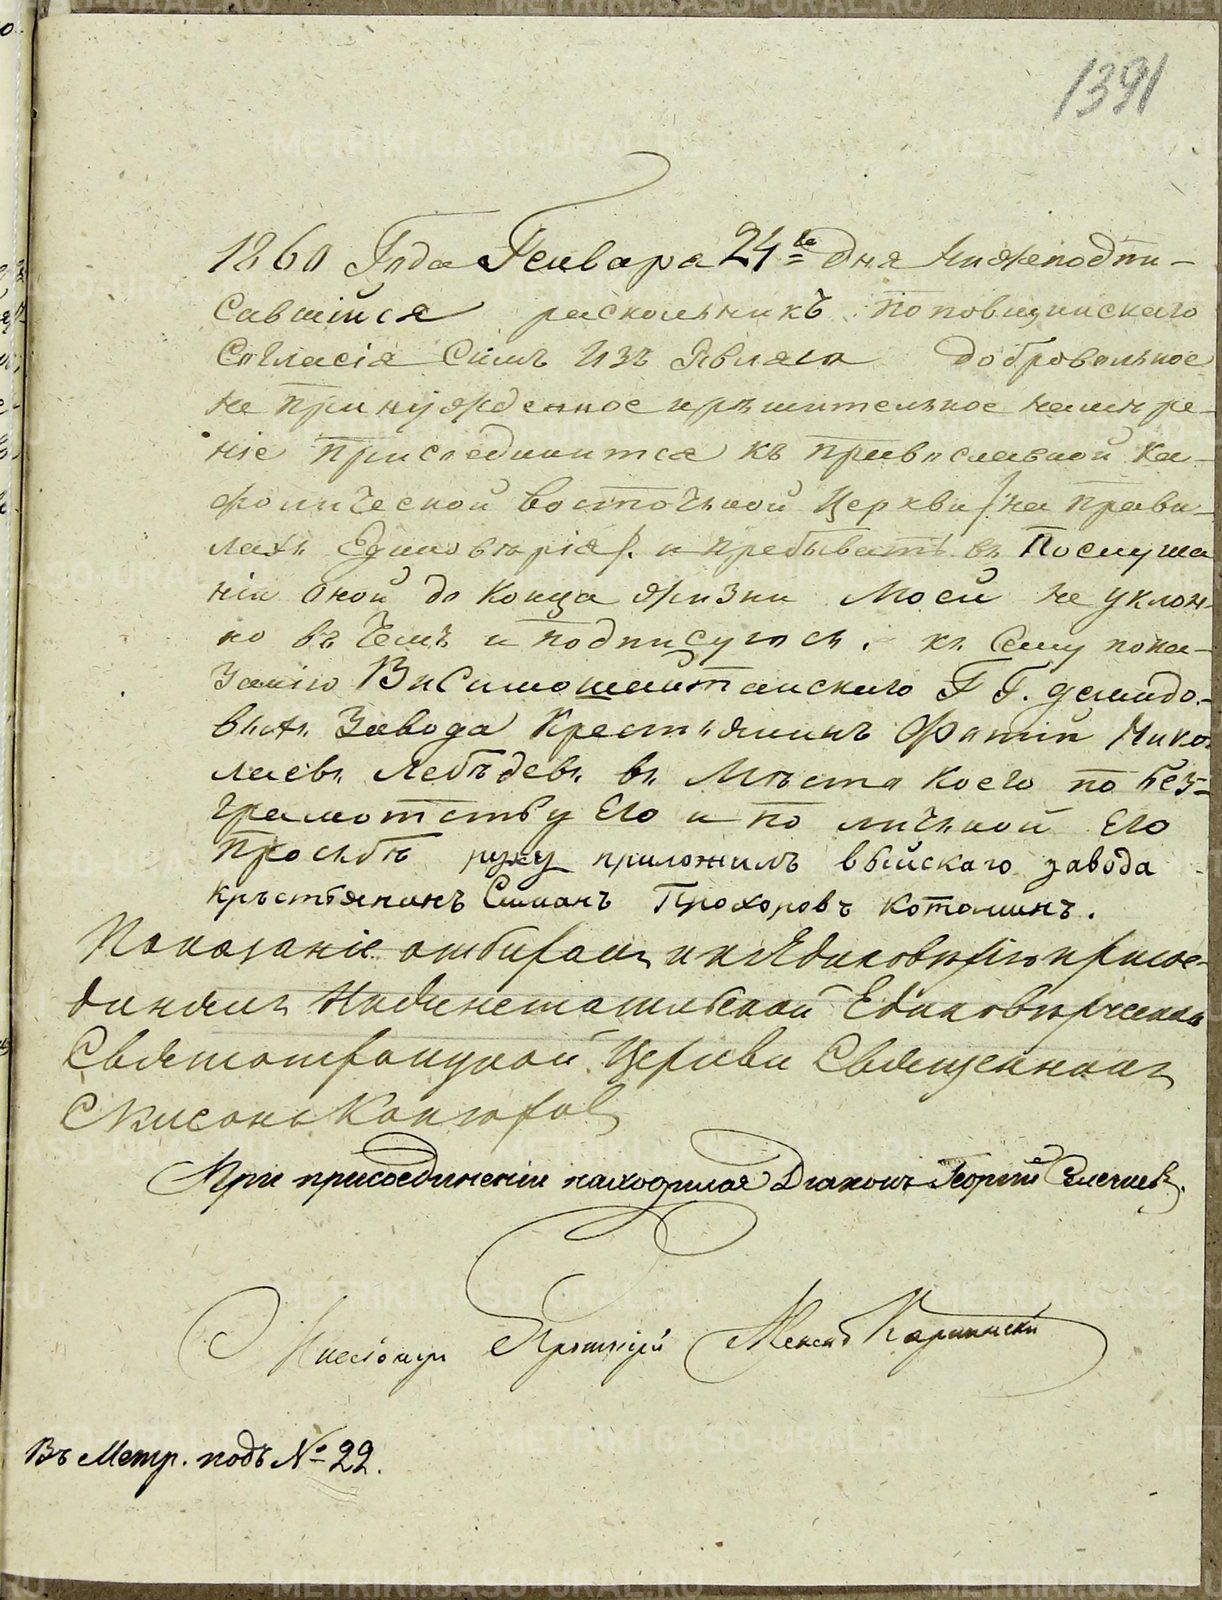 1391
1860 Года Генваря 24го дня Нижеподпи-
савшійся раскольникъ поповщинскаго
согласія Симъ Изъ Являю добровольное
не принужденное и рѣшительное намѣре-
ніе присоединится къ православной Ка-
фолической восточной Церкви /: на прави-
лахъ Единовѣрія /: и пребывать въ Послуша
ніи оной до Конца жизни Моей не уклон-
но въ Чемъ и подписуюсь. къ Сему пока-
Занію Висимошайтанскаго ГГ. демидо-
выхъ Завода Крестьянинъ Фотій Нико-
лаевъ Лебѣдевъ въ Мѣста Коего по без-
грамотству Его и по личьной Его
Просьбѣ руку приложилъ выйскаго завода
крѣстьянинъ Симанъ Прохоровъ Котоминъ.
Показаніе отбиралъ и къ Единовѣрію присое-
динялъ Нижнетагильской Единовѣрческой
Святотроицкой Церкви Священникъ
При присоединеніи находился Діаконъ Георгій
Миссіонеръ Протоіерей
Въ Метр. подъ № 22.
METRIKI.GASO-URAL.RU